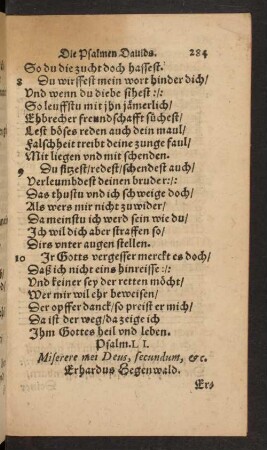 Die Psalmen Dauids. 284
So du die zucht doch hassest.
8 Du wirffest mein wort hinder dich/
Vnd wenn du diebe sihest :/:
So leuffstu mit jhn jämerlich/
Ehbrecher freundschafft süchest/
Lest böses reden auch dein maul/
Falschheit treibt deine zunge faul/
Mit liegen vnd mit schenden.
9 Du sitzest/redest/schendest auch/
Verleumbdest deinen bruder :/:
Das thustu vnd ich schweige doch/
Als wers mir nicht zuwider/
Da meinstu ich werd sein wie du/
Ich wil dich aber straffen so/
Dirs vnter augen stellen.
10 Jr Gotts vergesser merckt es doch/
Daß ich nicht eins hinreisse :/:
Vnd keiner sey der retten möcht/
Wer mir wil ehr beweisen/
Der opffer danck/so preist er mich/
Da ist der weg/da zeige ich
Ihm Gottes heil vnd leben.
Psalm. LI.
Miserere mei Deus, secundum, &c.
Erhardus Hegenwald.
Er⸗